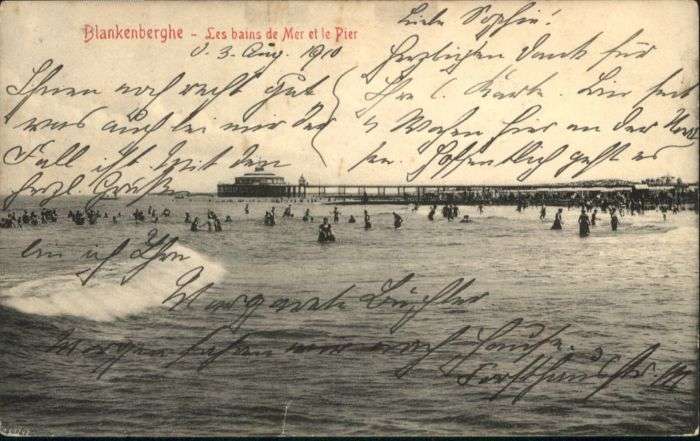 Blankenberghe - Les bains de Mer et le Pier
d. 3. Aug. 1910
Liebe Sophie!
Herzlichen Dank für
Ihre l. Karte. Wir sind
4 Wochen hier an der Nord
see. Hoffentlich geht es
Ihnen noch recht gut
was auch bei mir der
Fall ist. Mit den
herzl. Grüßen
bin ich Ihre
Margarete
Morgen fahren wir nach Hause.